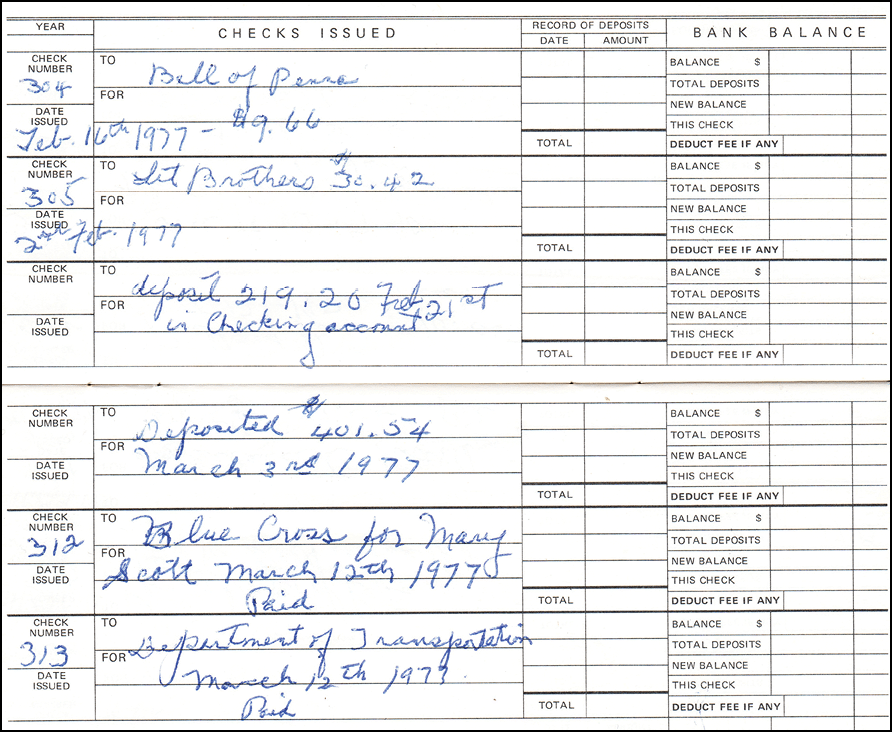 YEAR CHECKS ISSUED RECORD OF DEPOSITS BANK BALANCE
DATE AMOUNT
CHECK NUMBER TO BALANCE $
304 Bell of Penna
FOR TOTAL DEPOSITS
DATE ISSUED $9.66 NEW BALANCE
Feb. 16th 1977 - THIS CHECK
TOTAL DEDUCT FEE IF ANY
CHECK NUMBER TO BALANCE $
305 Lit Brothers $30.42 TOTAL DEPOSITS
FOR NEW BALANCE
DATE ISSUED THIS CHECK
Feb. 1977
TOTAL DEDUCT FEE IF ANY
CHECK NUMBER TO BALANCE $
deposit 219.20 Feb 21st TOTAL DEPOSITS
FOR in Checking account NEW BALANCE
DATE ISSUED THIS CHECK
TOTAL DEDUCT FEE IF ANY
CHECK NUMBER TO BALANCE $
Deposited $401.54 TOTAL DEPOSITS
FOR NEW BALANCE
DATE ISSUED March 3rd 1977 THIS CHECK
TOTAL DEDUCT FEE IF ANY
CHECK NUMBER TO BALANCE $
312 Blue Cross for Mary TOTAL DEPOSITS
FOR NEW BALANCE
DATE ISSUED Scott March 12th 1977 THIS CHECK
Paid TOTAL DEDUCT FEE IF ANY
CHECK NUMBER TO BALANCE $
313 Department of Transportation TOTAL DEPOSITS
FOR NEW BALANCE
DATE ISSUED March 12th 1977 THIS CHECK
Paid TOTAL DEDUCT FEE IF ANY